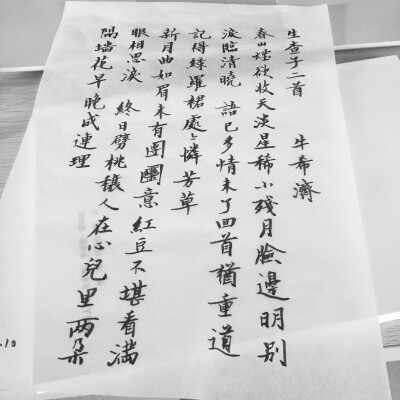 生查子二首　牛希濟
春山煙欲收天淡星稀小殘月臉邊明别
淚臨清曉　語已多情未了回首猶重道
記得綠羅裙處々憐芳草
新月曲如眉未有團圞意紅豆不堪看满
眼相思淚　終日劈桃穰人在心兒里两朵
隔墻花早晚成連理
.10